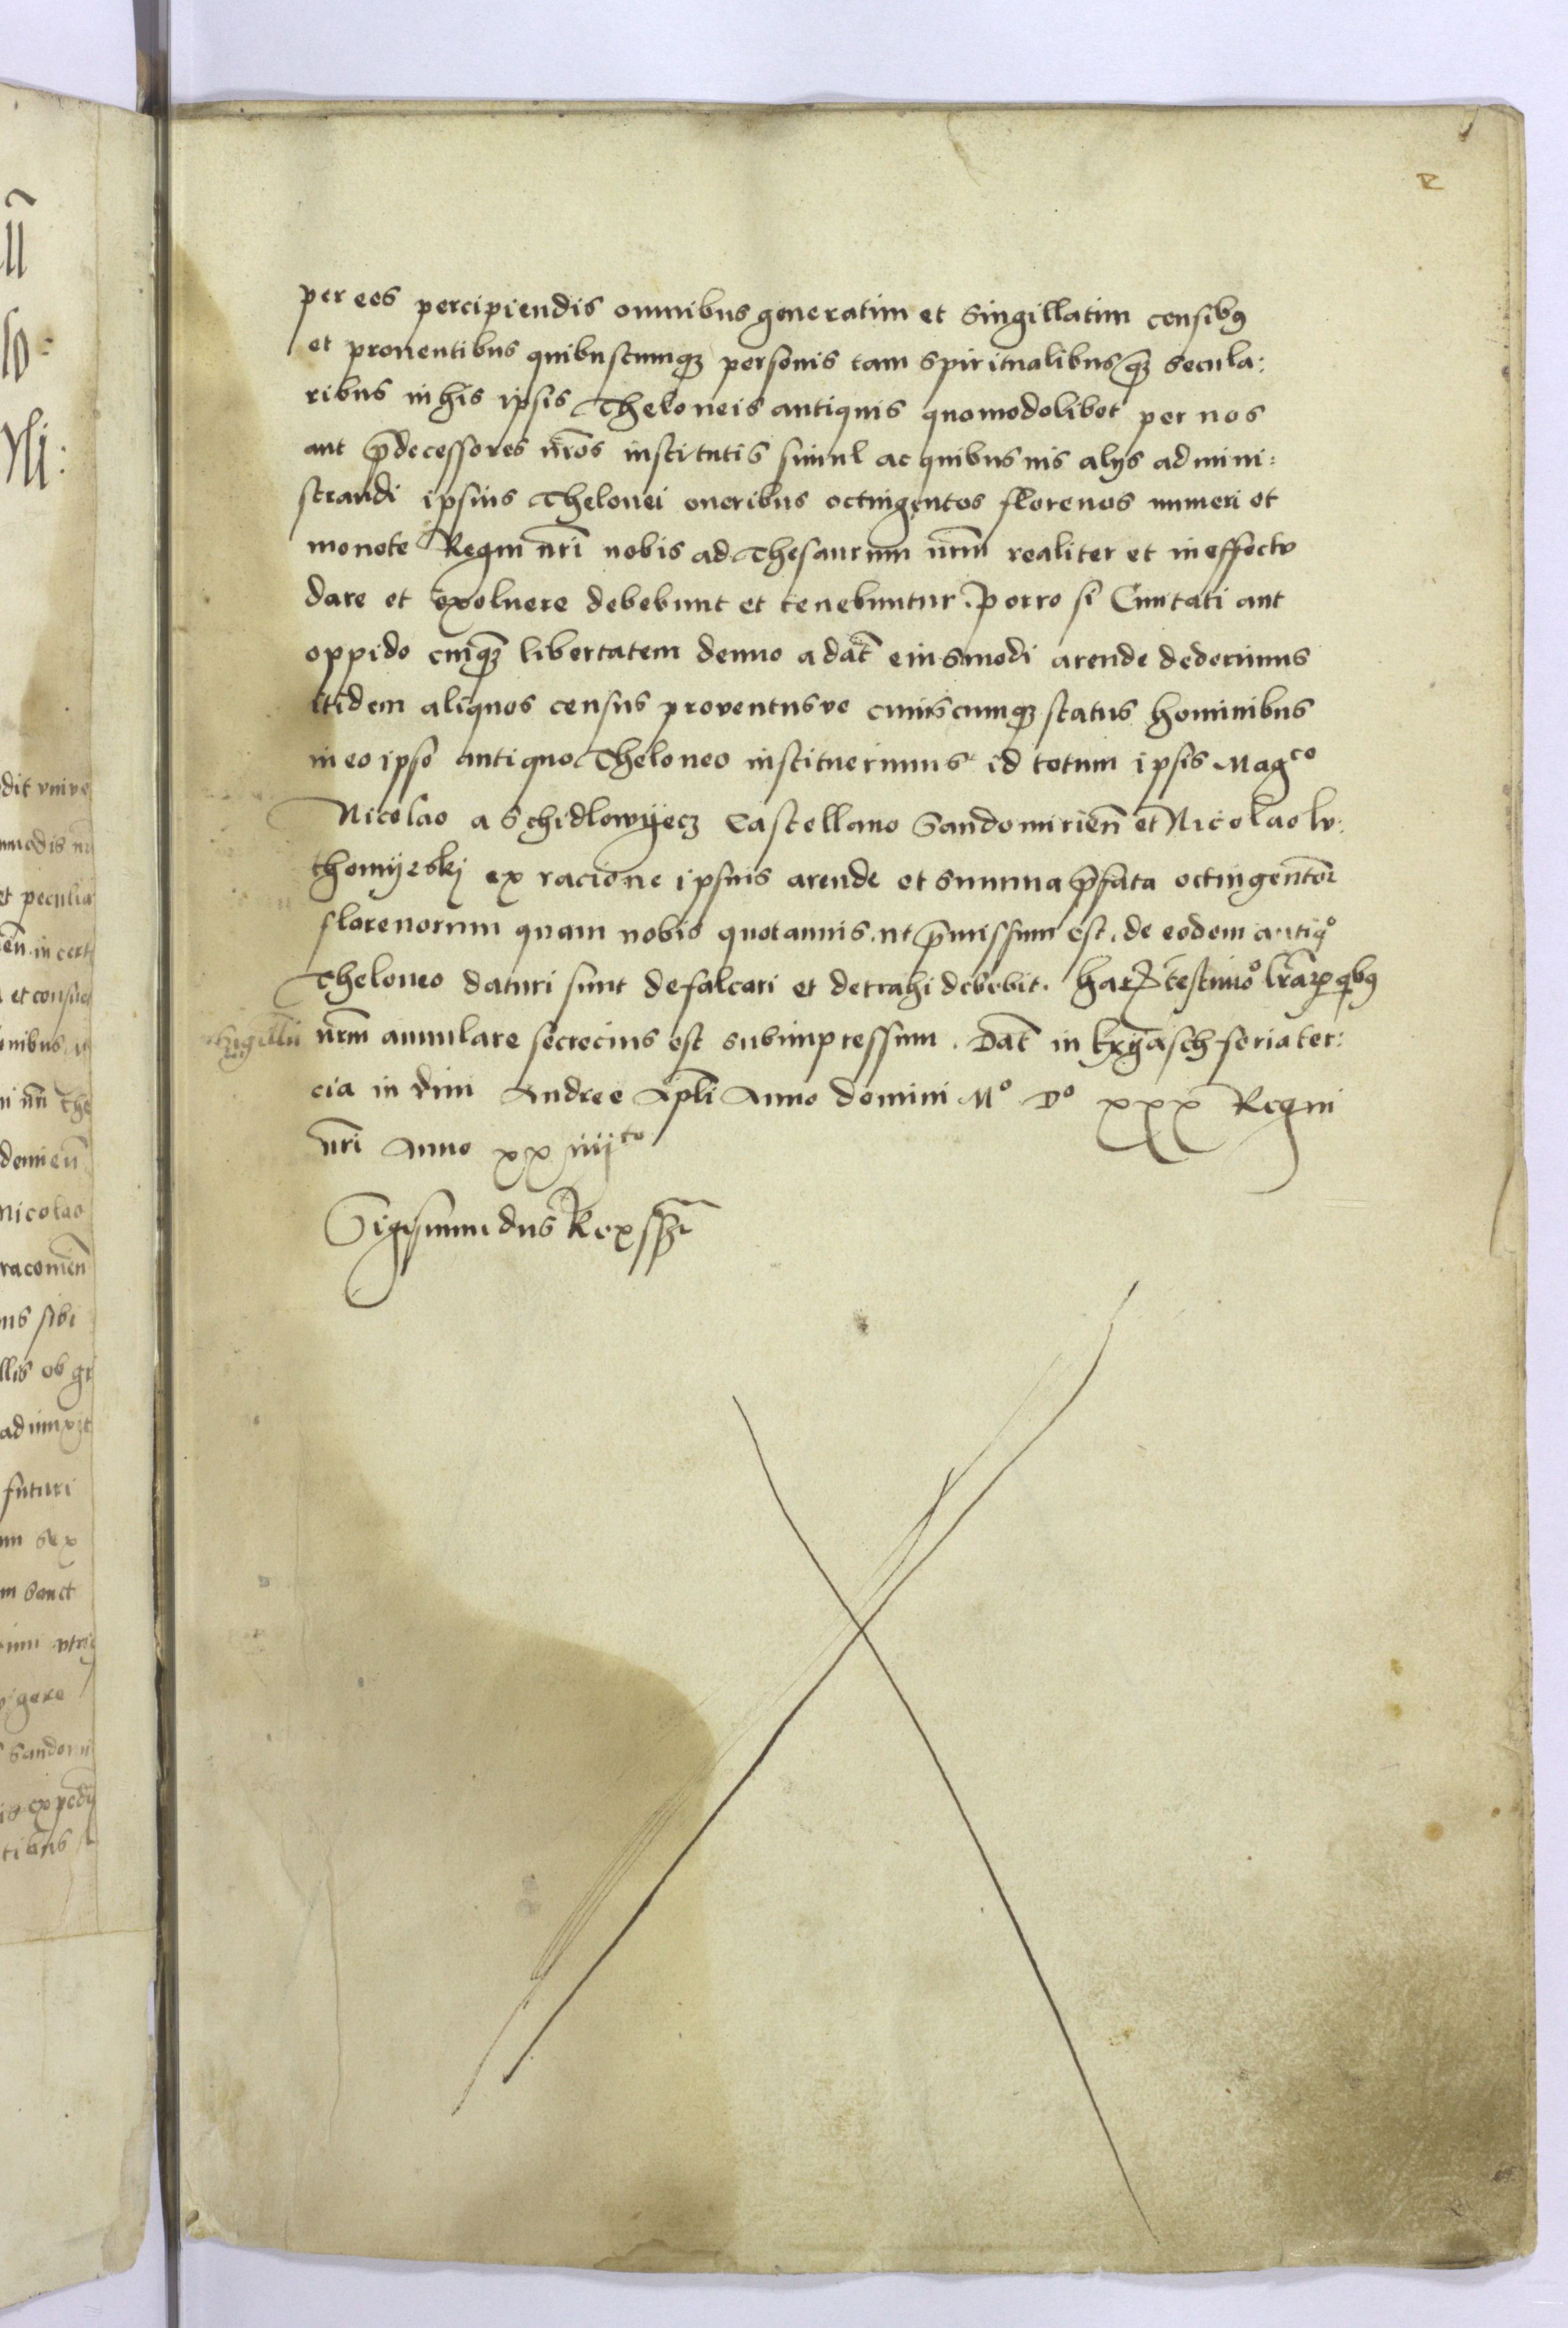 per eos percipiendis omnibus generatim et singillatim censibꝰ
et prouentibus quibuscumqꝫ personis tam spiritualibus qͣꝫ secula:
ribus in his ipsis Theloneis antiquis quomodolibet per nos
aut p̄decessores nr̄os institutis simul ac quibusuis alijs admini:
strandi ipsius Thelonei oneribus octingentos florenos numeri et
monete Regni nr̄i nobis ad Thesaurum nr̄m realiter et in effectu
dare et exoluere debebunt et tenebuntur. Porro si Ciuitati aut
oppido cuiqͣꝫ libertatem denuo a dat̄ eiusmodi arende dederimus
itidem aliquos census prouentusve cuiuscumqꝫ status hominibus
in eo ipso antiquo Theloneo instituerimus id totum ipsis Magᶜᵒ
Nicolao a Schidlowyecz Castellano Sandomirien̄ et Nicolao lu:
thomyrskj ex racione ipsius arende et summa p̄fata octingentor̄
florenorum quam nobis quotannis, ut p̄missum est, de eodem antiqᵒ
Theloneo daturi sunt defalcari et detrahi debebit. harꝫ testimoᵒ lr̄arꝫ qbꝰ
sigillū nr̄m annulare secrecius est subimpressum. Dat̄ in feria ter:
cia in Andree Apl̄i Anno domini Mᵒ Dᵒ xxx Regni
nr̄i Anno xx iiijᵗᵒ
Sigismundus Rex sp̄t
dit vnive
et peculia
en̄. in cert
et consue
inibus
nn̄ the
domien̄
Nicolao
racomen̄
us sibi
llis ob gr
adiunxit
futuri
um sex
m sanct
gere
Sandomi
expedij